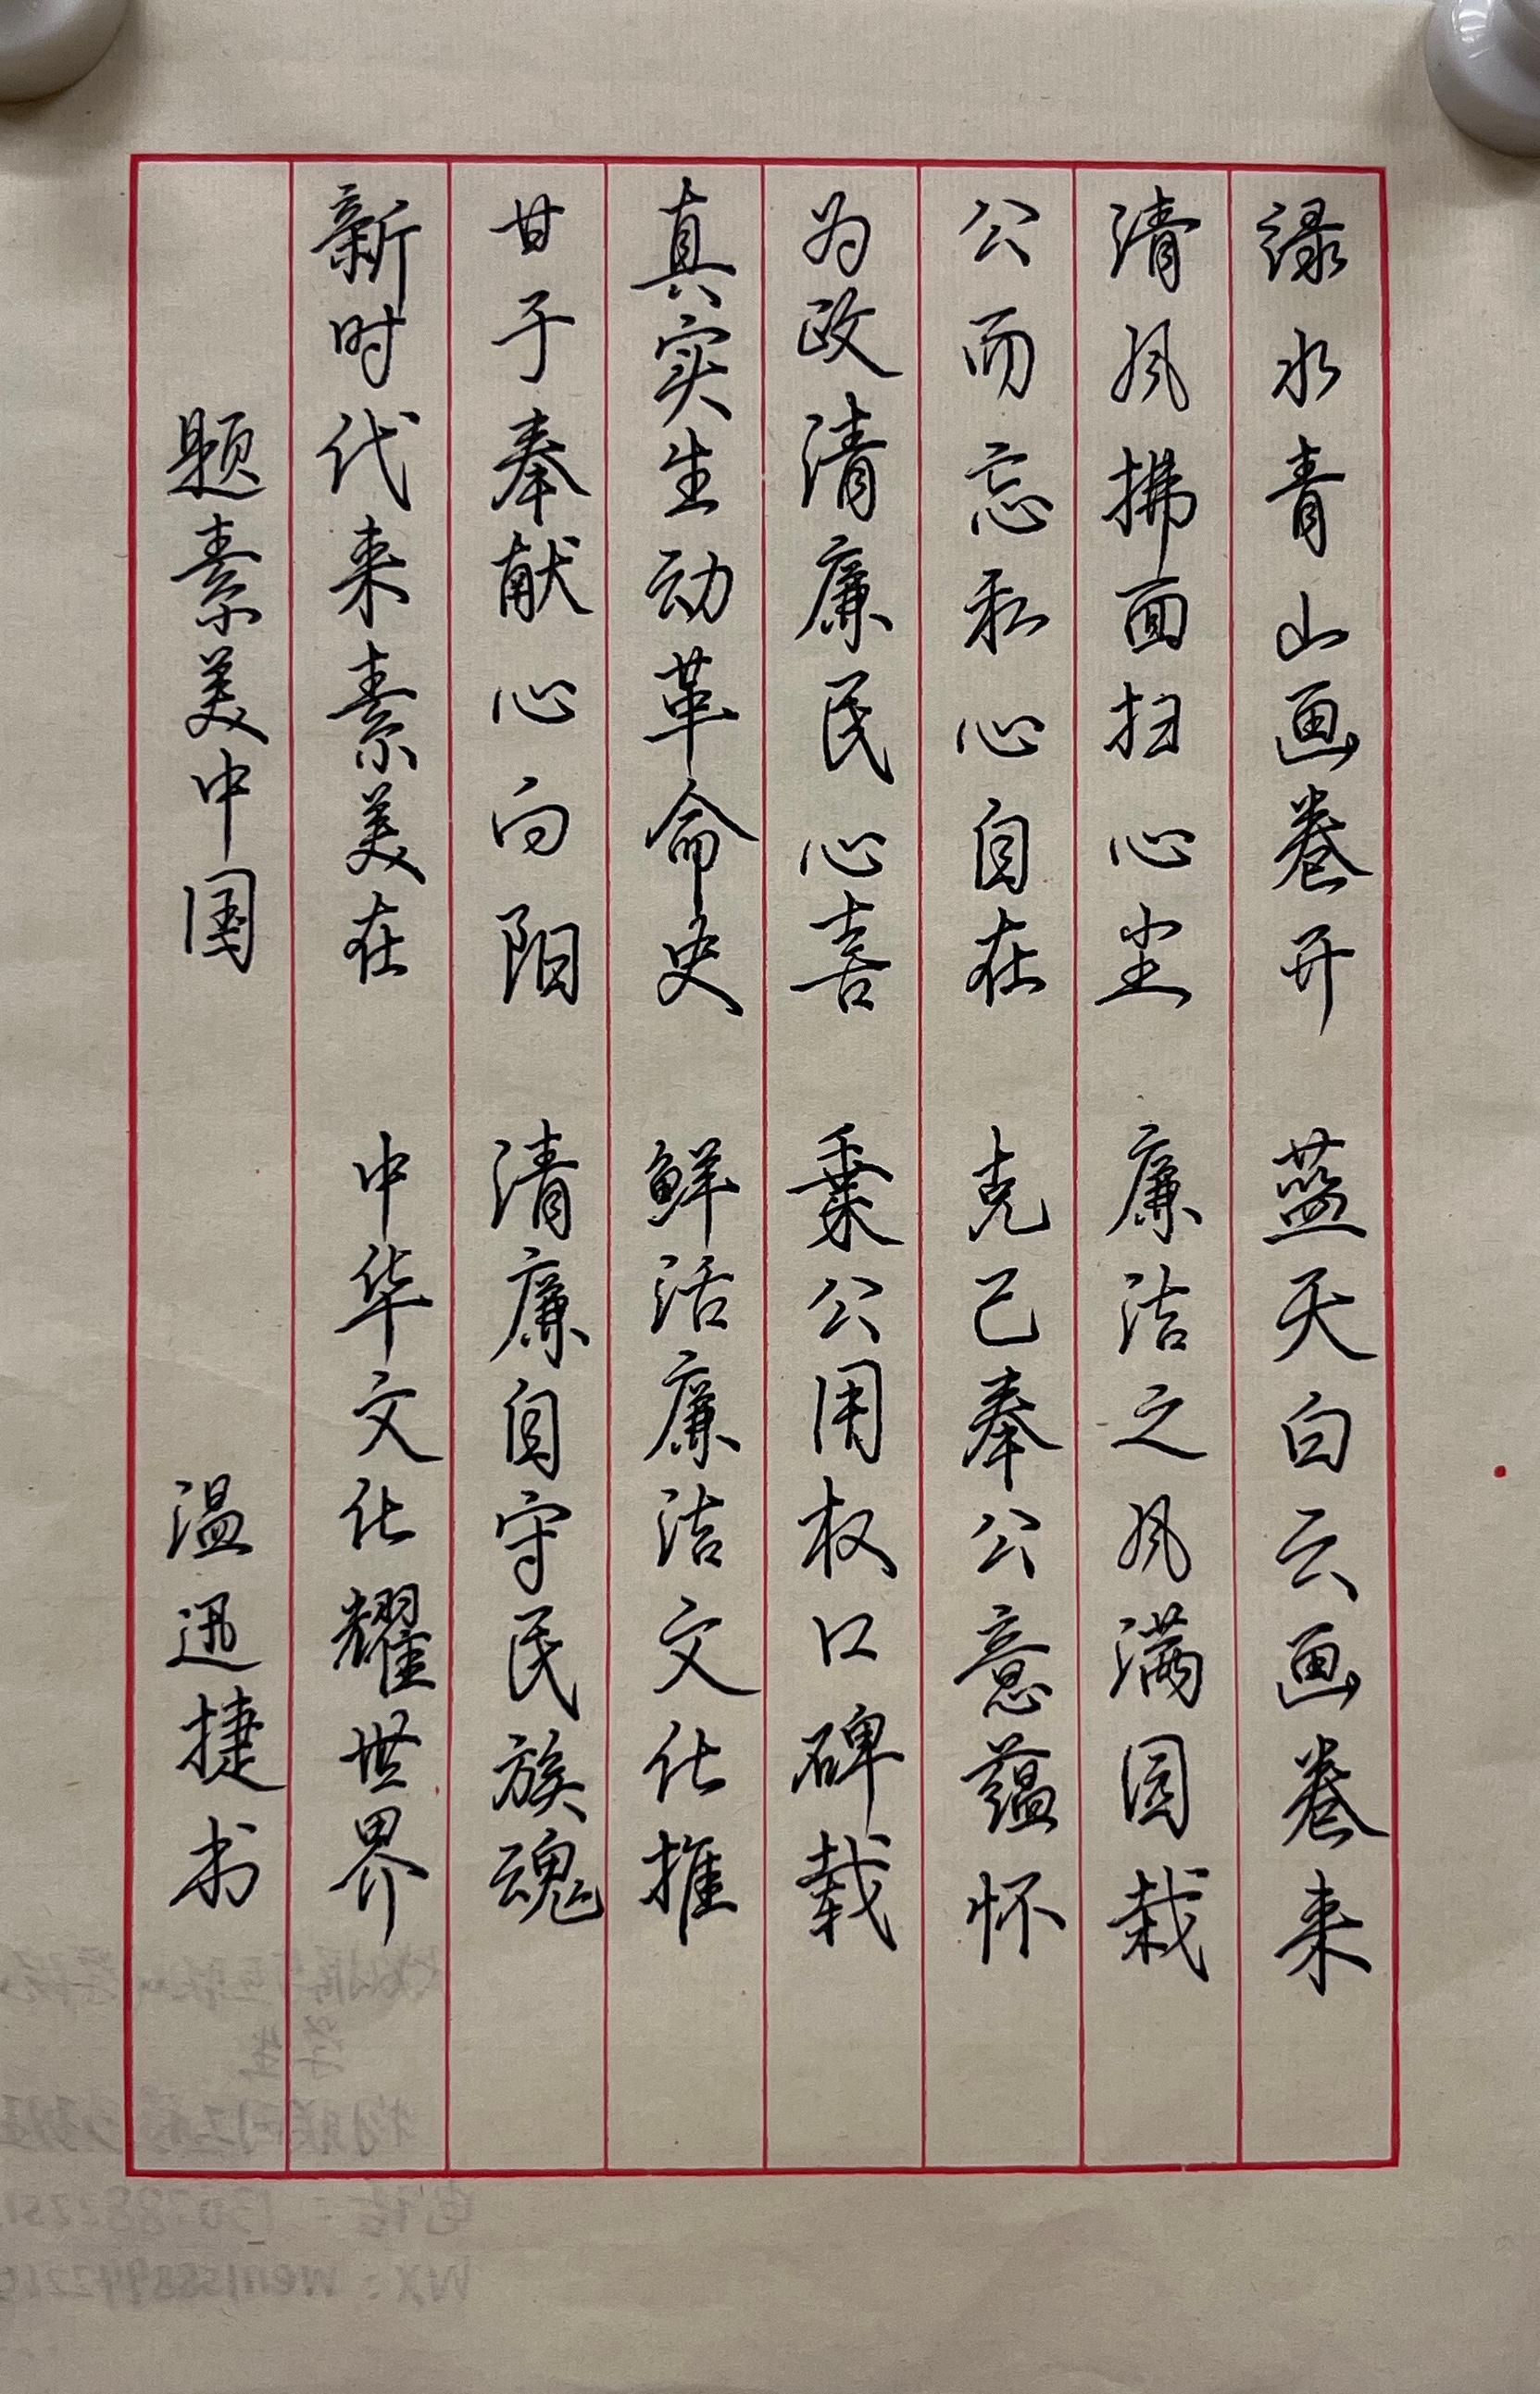 绿水青山画卷开 蓝天白云画卷来
清风拂面扫心尘 廉洁之风满园栽
公而忘私心自在 克己奉公意蕴怀
为政清廉民心喜 秉公用权口碑载
真实生动革命史 鲜活廉洁文化推
甘于奉献心向阳 清廉自守民族魂
新时代来素美在 中华文化耀世界
题素美中国 温迅捷书
学生